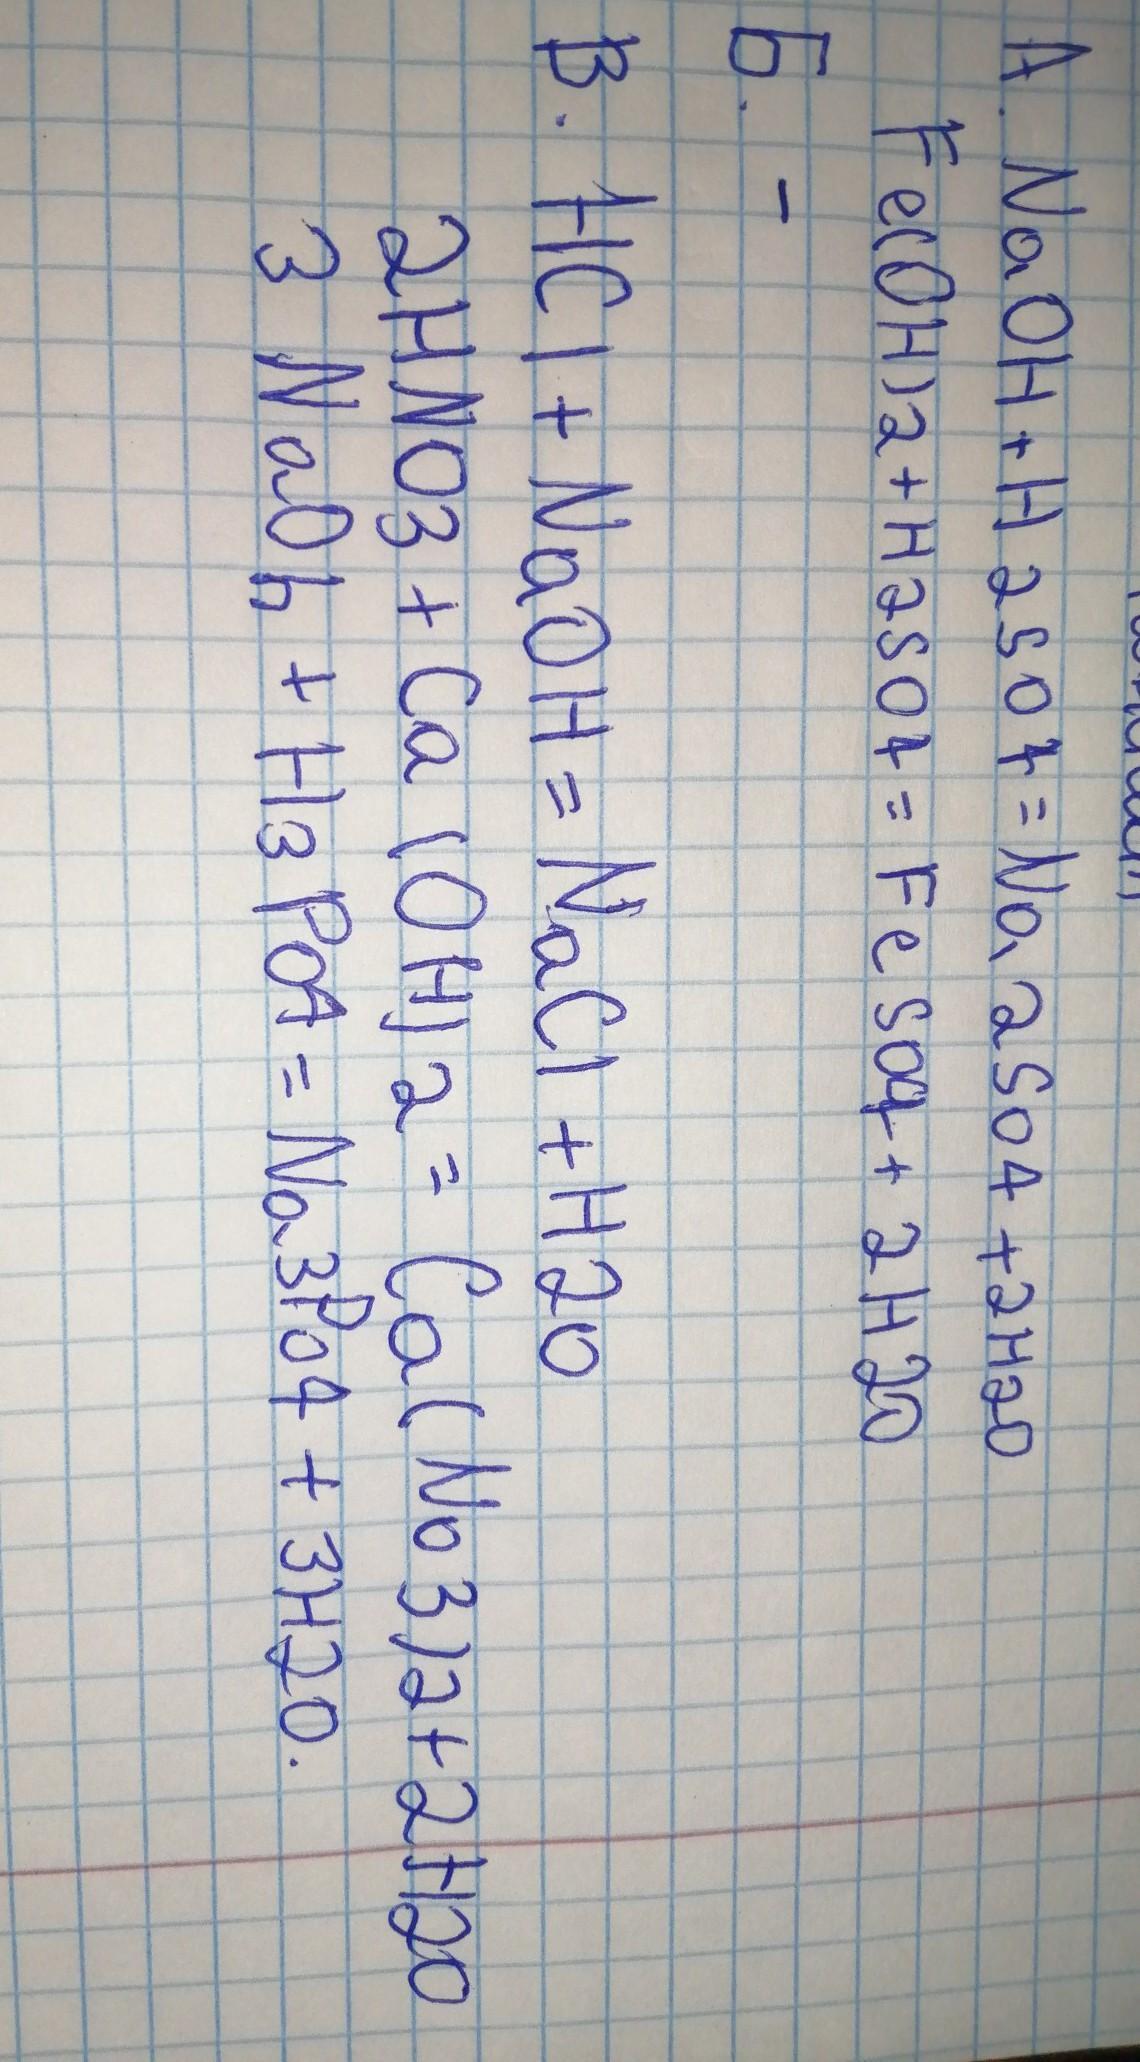 А. NaOH + H2SO4 = Na2SO4 + 2H2O
Fe(OH)2 + H2SO4 = FeSO4 + 2H2O
Б. -
В. HCl + NaOH = NaCl + H2O
2HNO3 + Ca(OH)2 = Ca(NO3)2 + 2H2O
3 NaOh + H3PO4 = Na3PO4 + 3H2O.